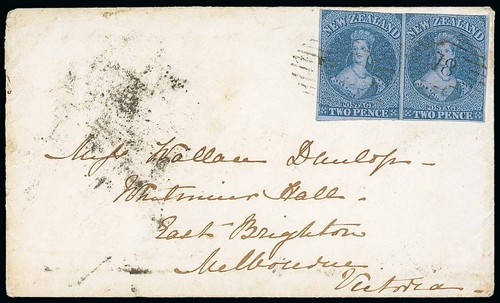 NEW ZEALAND NEW ZEALAND
18
POSTAGE POSTAGE
TWO PENCE TWO PENCE
Miss Wallace Dunlop -
Hall.
East Brighton
Melbourne
Victoria -